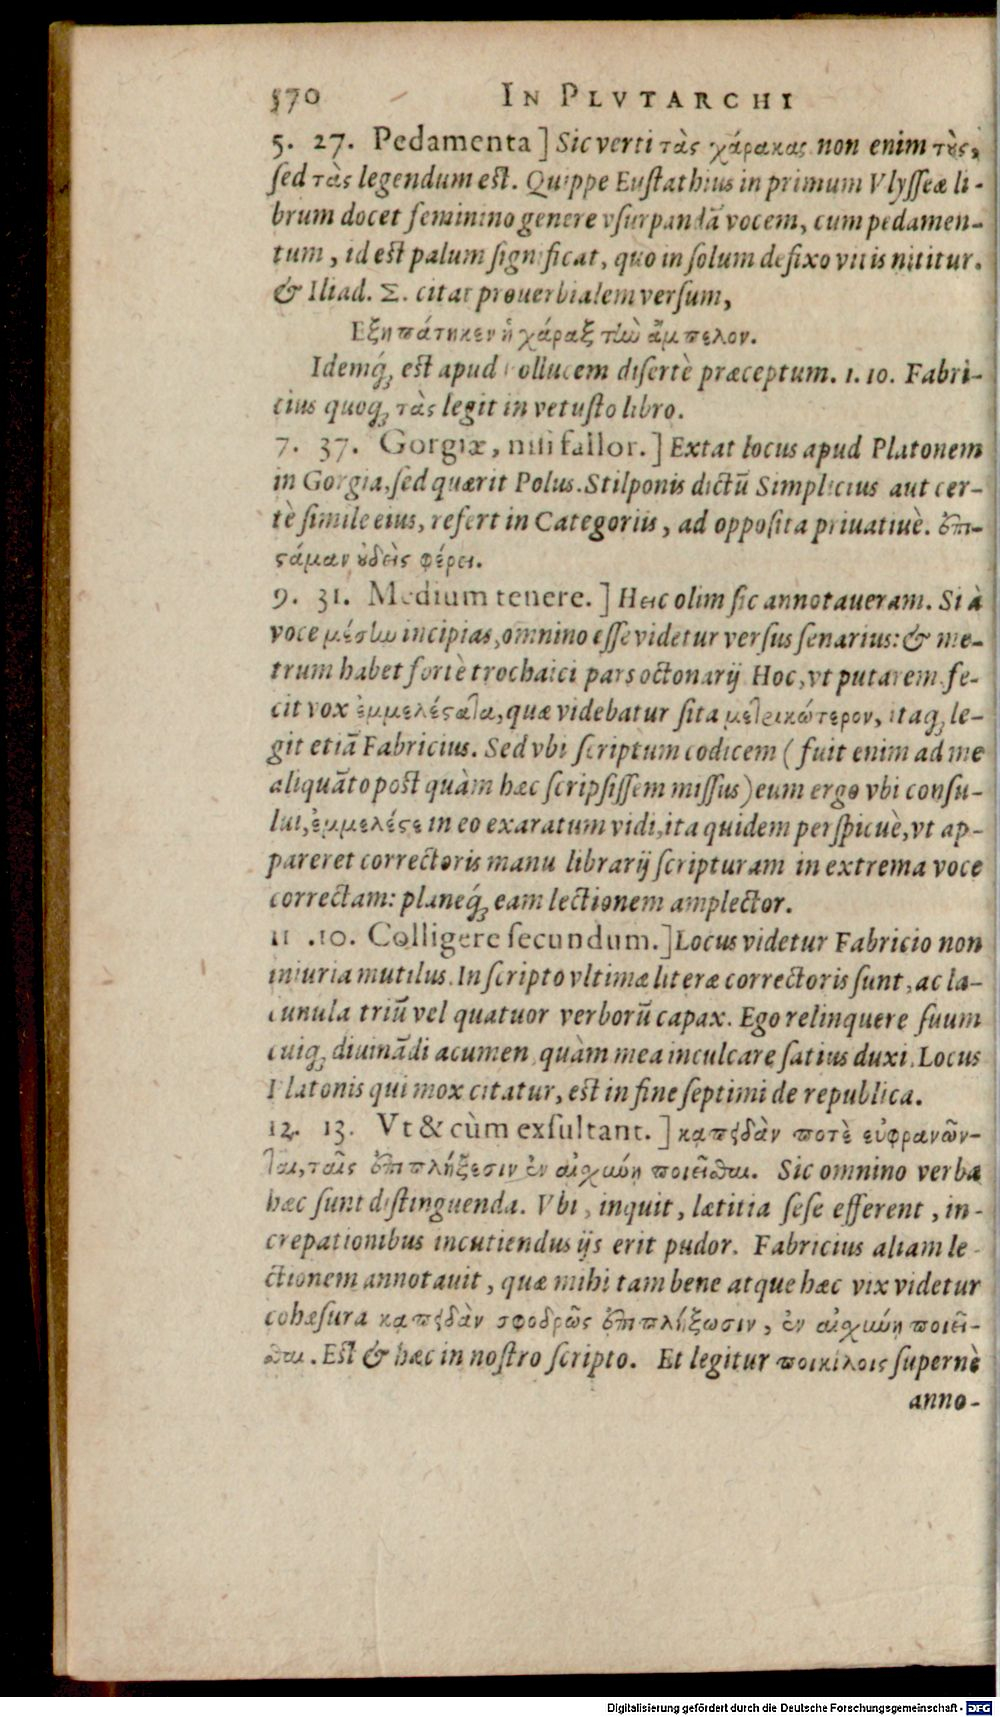 570 IN PLVTARCHI
5. 27. Pedamenta] Sic verti τὰς χάρακας non enim τὺς,
sed τὰς legendum est. Quippe Eustathius in primum Vlysseæ li-
brum docet feminino genere vsurpandā vocem, cum pedamen-
tum, id est palum significat, quo in solum defixo vitis nititur.
& Iliad. Σ. citat prouerbialem versum,
Εξηπάτηκεν ἡ χάραξ τὼ ἄμπελον.
Idemq́; est apud Pollucem disertè præceptum. 1. 10. Fabri-
cius quoq; τὰς legit in vetusto libro.
7. 37. Gorgiæ, nisi fallor.] Extat locus apud Platonem
in Gorgia, sed quærit Polus. Stilponis dictū Simplicius aut cer-
tè simile eius, refert in Categoriis, ad opposita priuatiuè. ἐπι-
ϛάμαν ȣ̓δεὶς φέρει.
9. 31. Medium tenere.] Hæc olim sic annotaueram. Si à
voce μέσων incipias, omnino esse videtur versus senarius: & me-
trum habet fortè trochaici pars octonarij Hoc, vt putarem, fe-
cit vox ἐμμελέϛατα, quæ videbatur sita μετρικώτερον, itaq; le-
git etiā Fabricius. Sed vbi scriptum codicem (fuit enim ad me
aliquāto post quàm hæc scripsissem missus) eum ergo vbi consu-
lui, ἐμμελέϛε in eo exaratum vidi, ita quidem perspicuè, vt ap-
pareret correctoris manu librarij scripturam in extrema voce
correctam: planeq́; eam lectionem amplector.
11 .10. Colligere secundum.] Locus videtur Fabricio non
iniuria mutilus. In scripto vltimæ literæ correctoris sunt, ac la-
cunula triū vel quatuor verborū capax. Ego relinquere suum
cuiq; diuināndi acumen, quàm mea inculcare satius duxi. Locus
Platonis qui mox citatur, est in fine septimi de republica.
12. 13. Vt & cùm exsultant.] κἀπειδὰν ποτὲ εὐφρανῶν-
ται, ταῖς ἐπιπλήξεσιν ἐν αἰχύνῃ ποιεῖσθαι. Sic omnino verba
hæc sunt distinguenda. Vbi, inquit, lætitia sese efferent, in-
crepationibus incutiendus ijs erit pudor. Fabricius aliam le-
ctionem annotauit, quæ mihi tam bene atque hæc vix videtur
cohæsura κἀπειδὰν σφοδρῶς ἐπιπλήξωσιν, ἐν αἰχύνῃ ποιεῖ-
σθαι. Est & hæc in nostro scripto. Et legitur ποικίλοις supernè
anno-
Digitalisierung gefördert durch die Deutsche Forschungsgemeinschaft - DFG